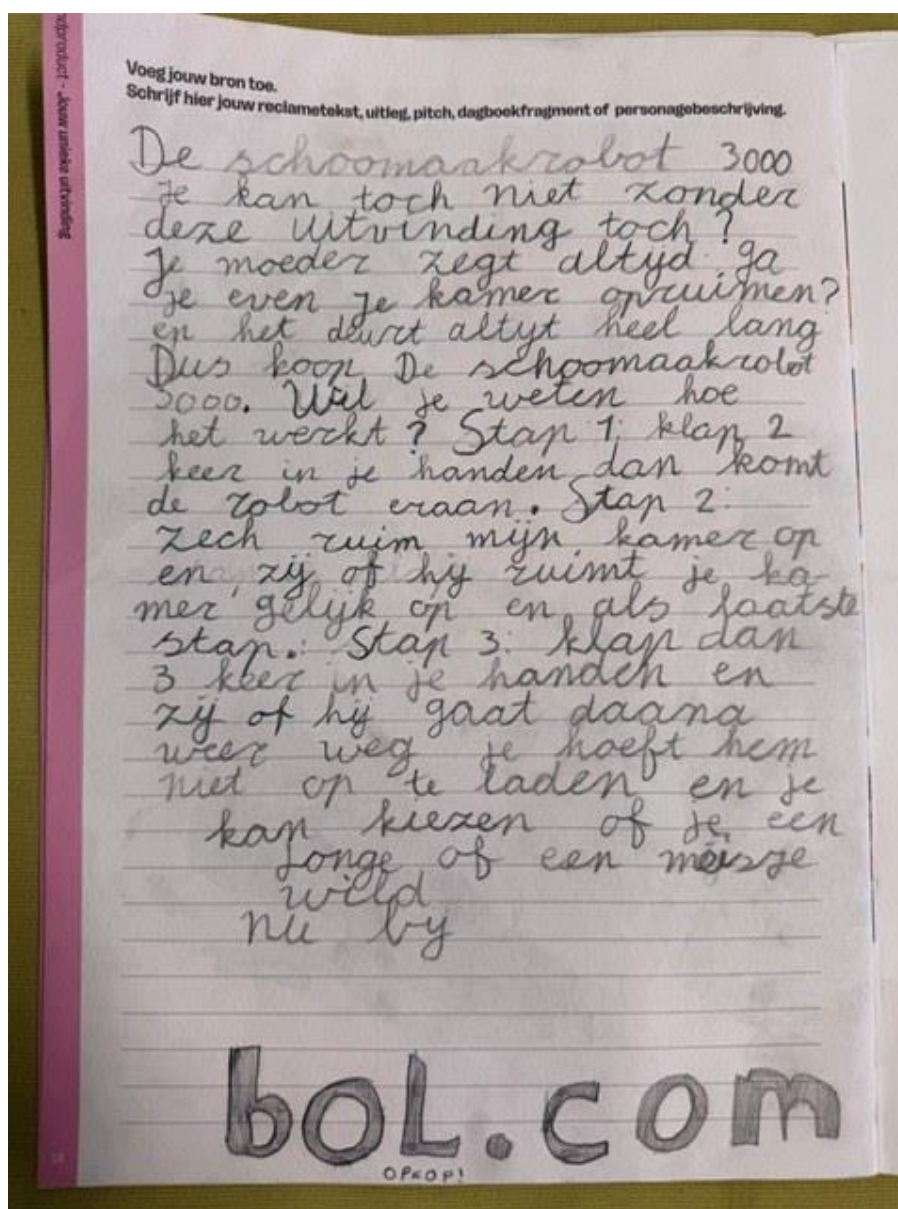 ndproduct - Jouw unieke uitvinding
Voeg jouw bron toe.
Schrijf hier jouw reclametekst, uitleg, pitch, dagboekfragment of personagebeschrijving.
De schoomaakrobot 3000
je kan toch niet zonder
deze uitvinding toch?
Je moeder zegt altyd ga
je even je kamer opruimen?
en het deurt altyt heel lang
Dus koop De schoomaakrobot
3000. Wil je weten hoe
het werkt? Stap 1: klap 2
keer in je handen dan komt
de robot eraan. Stap 2:
zech ruim mijn kamer op
en zij of hy ruimt je ka-
mer gelyk op en als laatste
stap.: Stap 3: klap dan
3 keer in je handen en
zij of hij gaat daana
weer weg je hoeft hem
niet op te laden en je
kan kiezen of je een
jonge of een meisje
wild
nu by
boL.com
OPKOP!
14